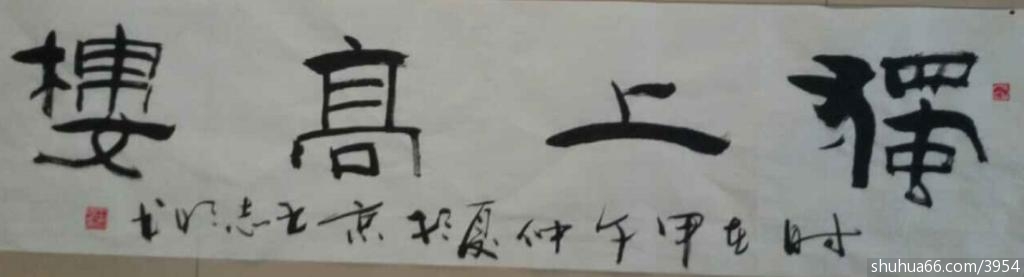 獨上高樓
时在甲午仲夏於京志明书
shuhua66.com/3954